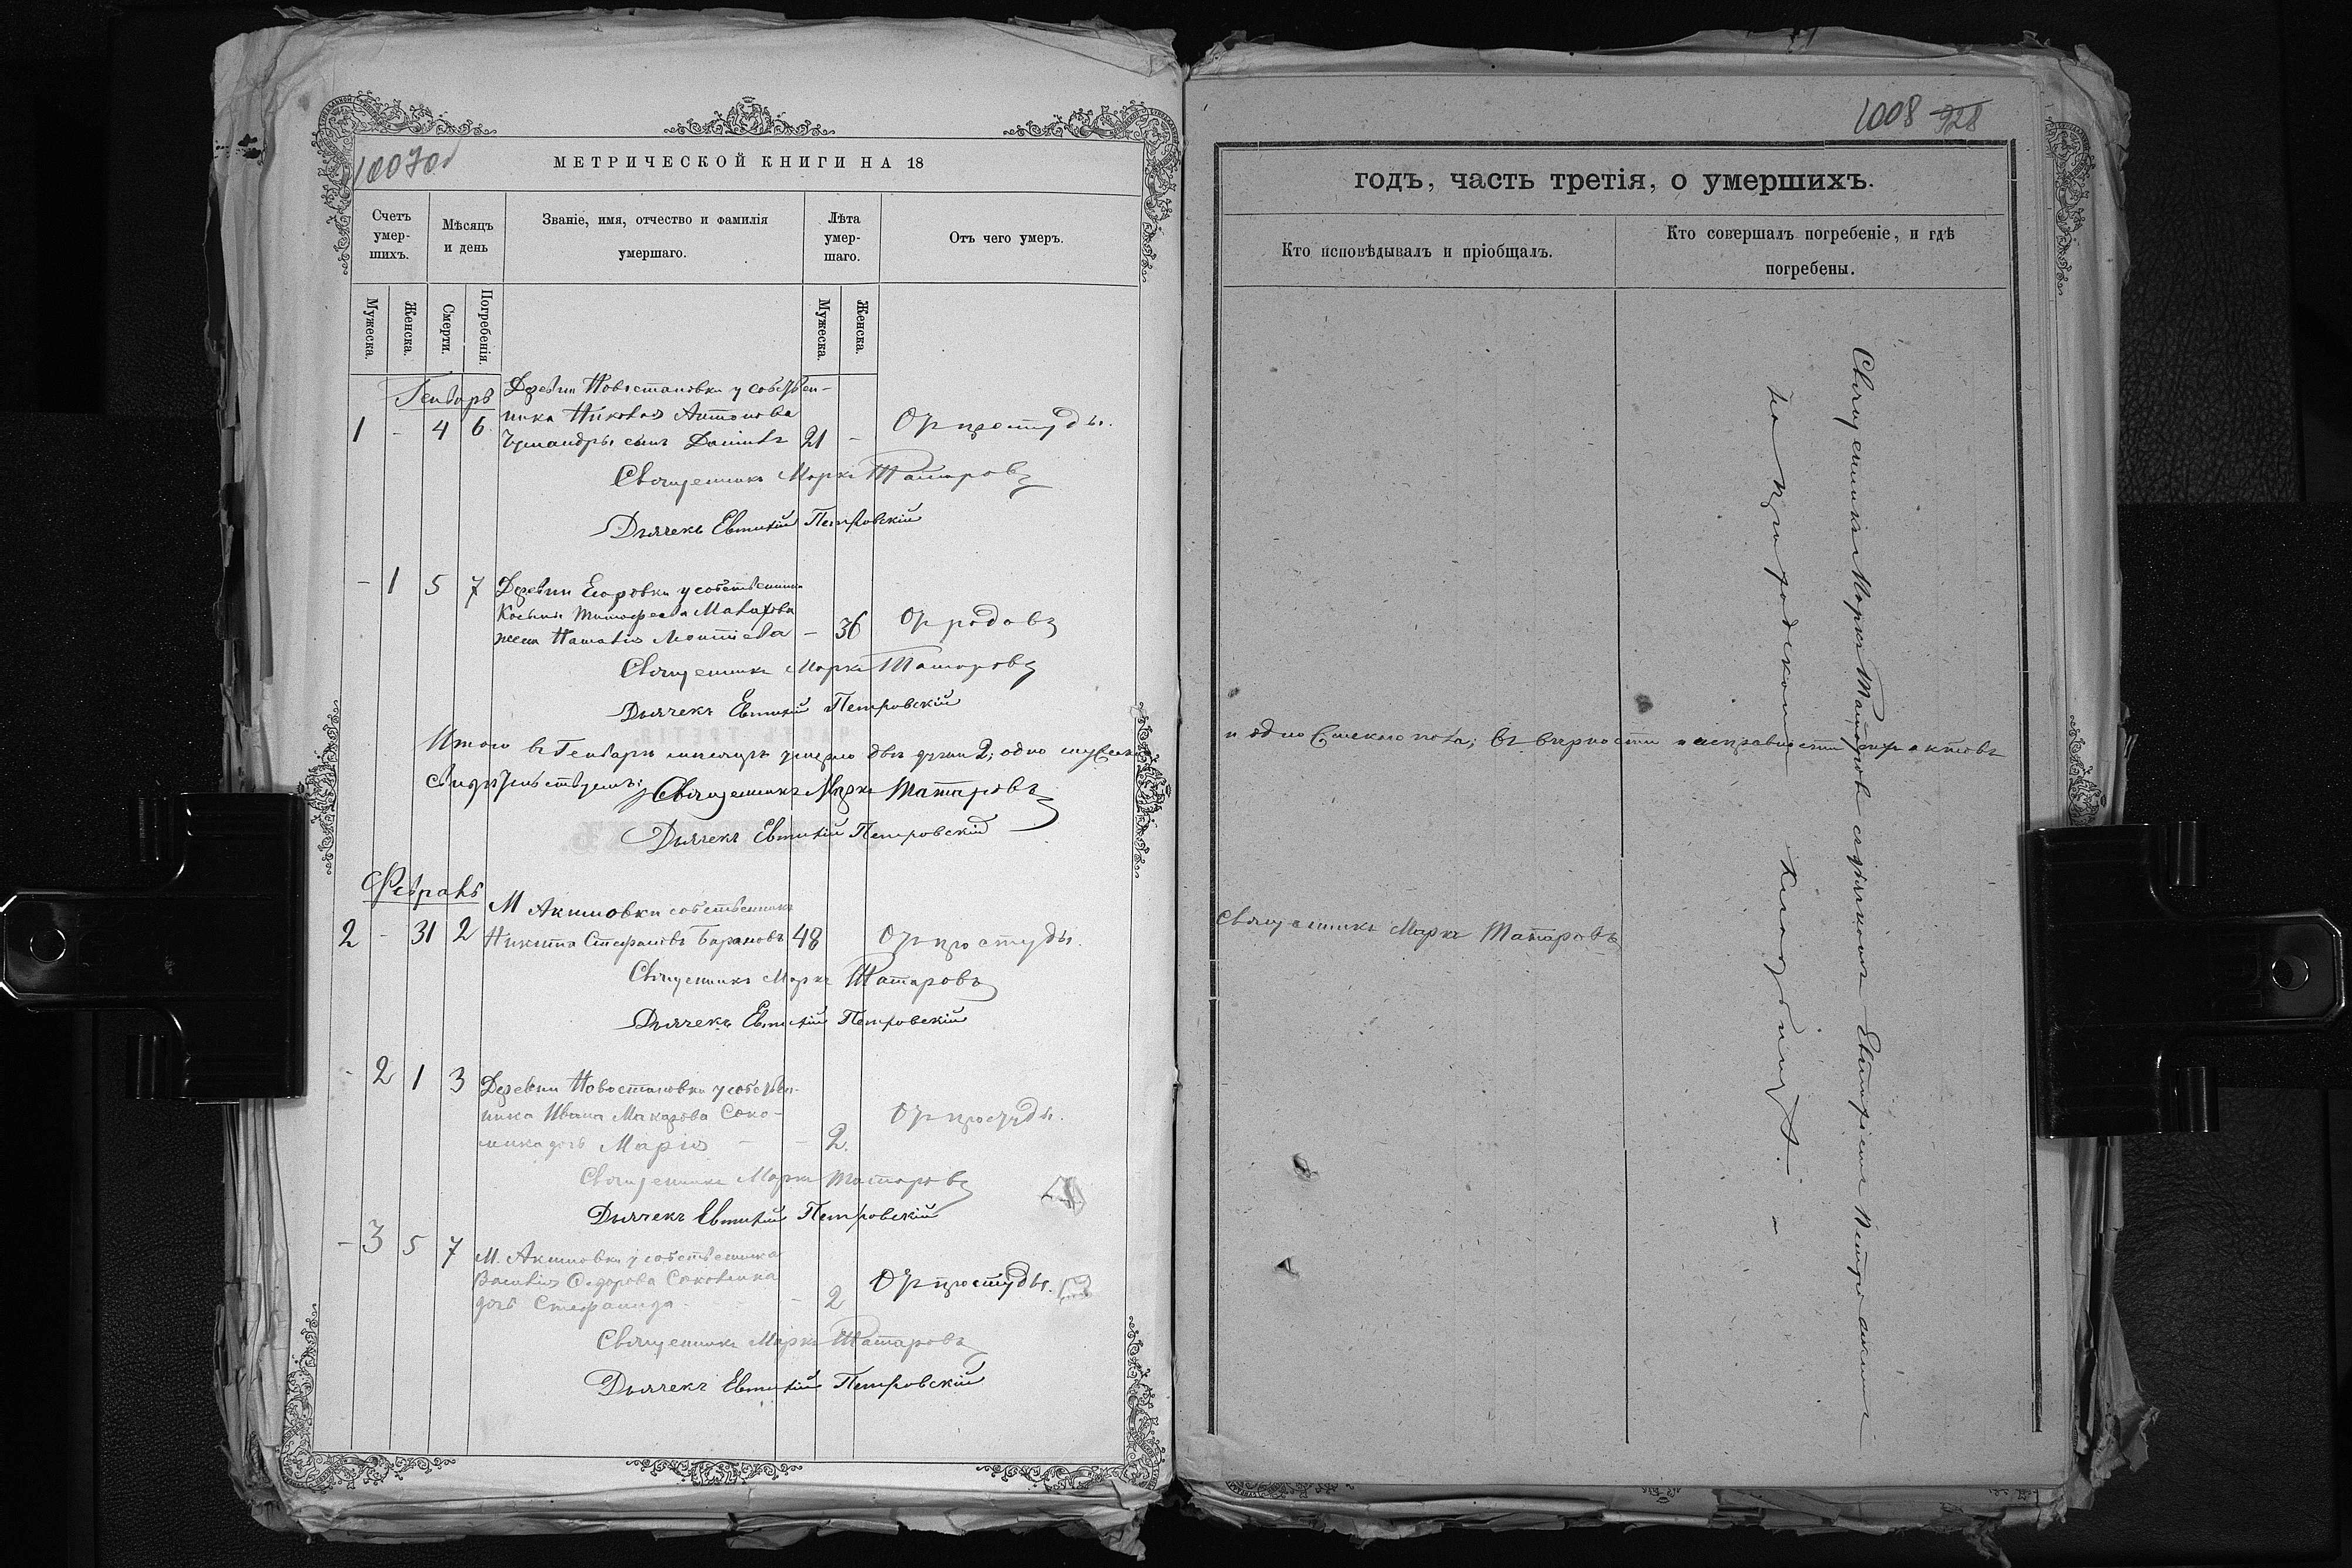 1007об
МЕТРИЧЕСКОЙ КНИГИ НА 18
Счетъ умер-шихъ.
Мѣсяцъ и день
Званіе, имя, отчество и фамилія умершаго.
Лѣта умер-шаго.
Отъ чего умеръ.
Мужеска.
Женска.
Смерти.
Погребенія.
Мужеска.
Женска.
Генварь
Деревни Новостановки у собствен-
ника Николая Антонова
1 - 4 6 сынъ Даніилъ 21 - От простуды.
Священникъ Маркъ Татаровъ
Дьячекъ Евтихій Петровскій
- 1 5 7 Деревни Егоровки у собственника
Космы Тимофеева Малахова
жена Наталія Матвіева - 36 От родовъ
Священникъ Маркъ Татаровъ
Дьячекъ Евтихій Петровскій
Итого въ Генварѣ мѣсяцѣ умерло двѣ души 2; одно мужеска
свидѣтельствуемъ: Священникъ Маркъ Татаровъ
Дьячекъ Евтихій Петровскій
Февраль
М Акимовки собственникъ
2 - 31 2 Никита Стефановъ Барановъ 48 От простуды.
Священникъ Маркъ Татаровъ
Дьячекъ Евтихій Петровскій
- 2 1 3 Деревни Новостановки у собствен-
ника Ивана Макарова
дочь Марія - - 2. От простуды.
Священникъ Маркъ Татаровъ
Дьячекъ Евтихій Петровскій
- 3 5 7 М. Акимовки у собственника
Василія Федорова
дочь Стефанида - 2 От простуды.
Священникъ Маркъ Татаровъ
Дьячекъ Евтихій Петровскій
1008 928
годъ, часть третія, о умершихъ.
Кто исповѣдывалъ и пріобщалъ.
Кто совершалъ погребеніе, и гдѣ погребены.
и одно женскаго пола; въ вѣрности и исправности актовъ
Священникъ Маркъ Татаровъ
Священникъ Маркъ Татаровъ съ дьячкомъ Евтихіемъ Петровскимъ
на приходскомъ кладбищѣ.